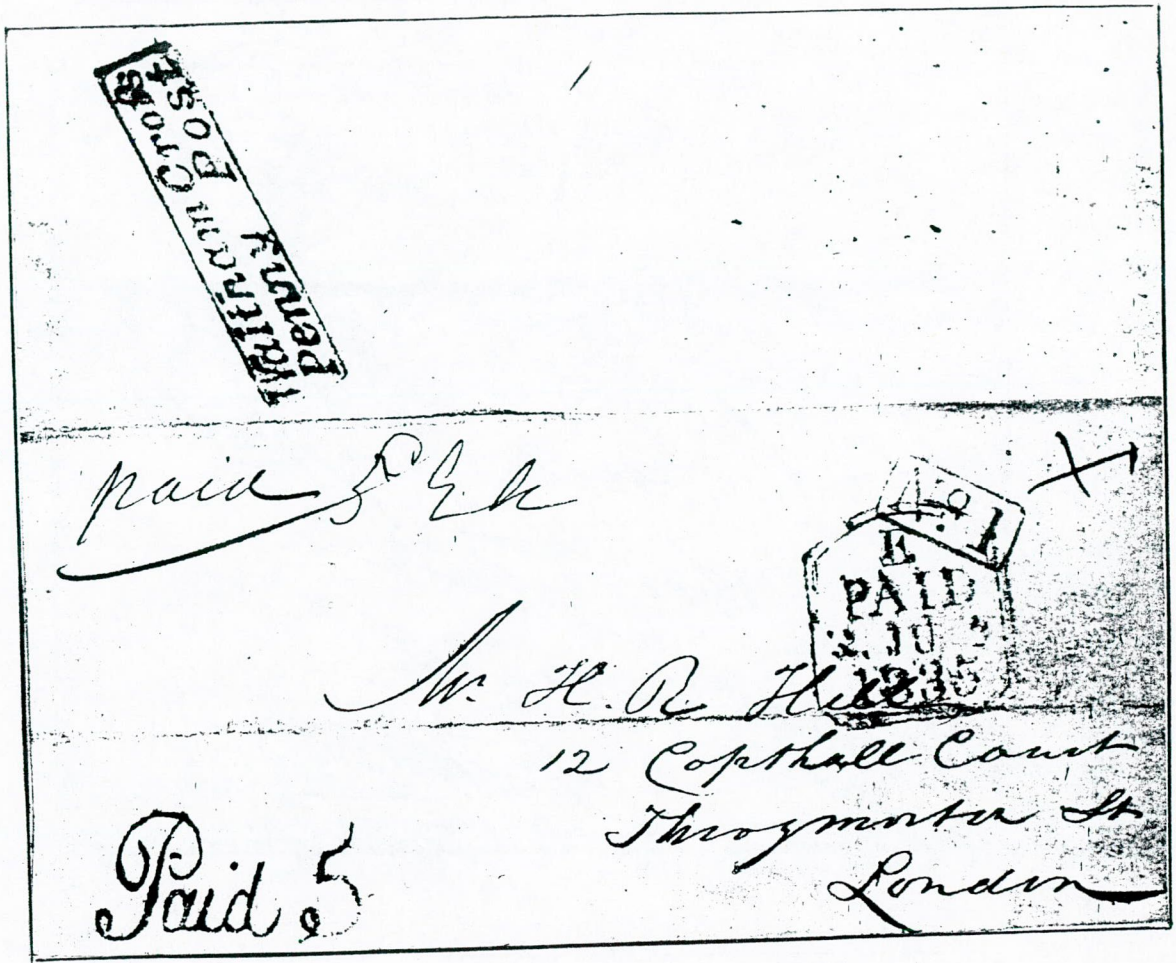 Waltham Cross
Penny Post
paid 5
No. 1
E
PAID
JU
1835
Mr. H. R. Hill
12 Copthall Court
Throgmorton St
London
Paid 5